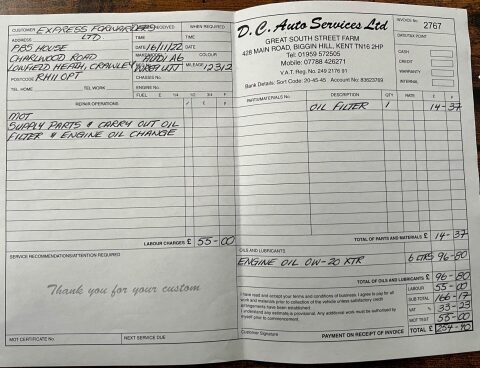 CUSTOMER EXPRESS FORWARDERS LTD
RECEIVED WHEN REQUIRED
ADDRESS PBS HOUSE
TIME TIME
CHARLWOOD ROAD
DATE 16/11/22
LOWFIELD HEATH, CRAWLEY
AUDI A6
COLOUR
MILEAGE 12312
POSTCODE RH11 0PT
CHASSIS No.
TEL. HOME TEL. WORK
ENGINE No.
FUEL E 1/4 1/2 3/4 F
REPAIR OPERATIONS £ P
MOT
SUPPLY PARTS & CARRY OUT OIL
FILTER & ENGINE OIL CHANGE
LABOUR CHARGES £ 55-00
SERVICE RECOMMENDATIONS/ATTENTION REQUIRED
Thank you for your custom
MOT CERTIFICATE No. NEXT SERVICE DUE
D. C. Auto Services Ltd
GREAT SOUTH STREET FARM
428 MAIN ROAD, BIGGIN HILL, KENT TN16 2HP
Tel: 01959 572505
Mobile: 07788 426271
V.A.T. Reg. No. 249 2176 91
Bank Details: Sort Code: 20-45-45 Account No: 83623769
INVOICE No. 2767
DATE/TAX POINT
CASH
CREDIT
WARRANTY
INTERNAL
PARTS/MATERIALS No. DESCRIPTION QTY. RATE £ P
OIL FILTER 1 14-37
TOTAL OF PARTS AND MATERIALS £ 14-37
OILS AND LUBRICANTS
ENGINE OIL 0W-20 XTR 6 LTRS 96-80
TOTAL OF OILS AND LUBRICANTS £ 96-80
I have read and accept your terms and conditions of business. I agree to pay for all
work and materials prior to collection of the vehicle unless satisfactory credit
arrangements have been established.
I understand any estimate is provisional. Any additional work must be authorised by
myself prior to commencement.
LABOUR 55-00
SUB TOTAL 166-17
VAT % 33-23
MOT TEST 55-00
Customer Signature PAYMENT ON RECEIPT OF INVOICE TOTAL £ 254-40